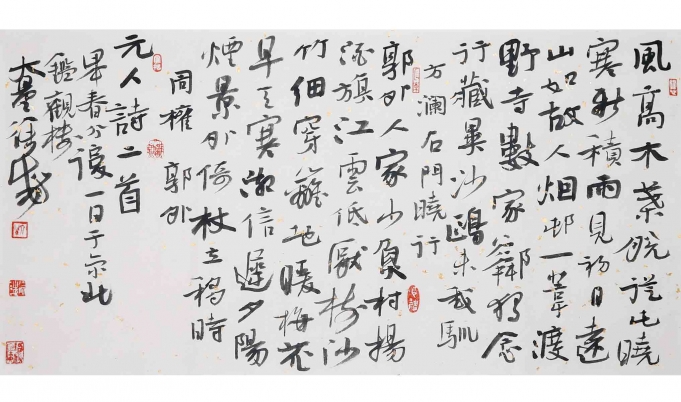 風高木葉脫從此曉
寒新積雨見初日遠
山如故人烟邨一葦渡
野寺數家鄰猶念
行藏異沙鷗未我馴
方澜石門曉行
郭外人家少負村揚
酒旗江雲低厭樹沙
竹細穿籬地暖梅花
早天寒潮信遲夕陽
煙景外倚杖立移時
周權 郭外
元人詩二首
春分後一日于京北
鑑觀樓